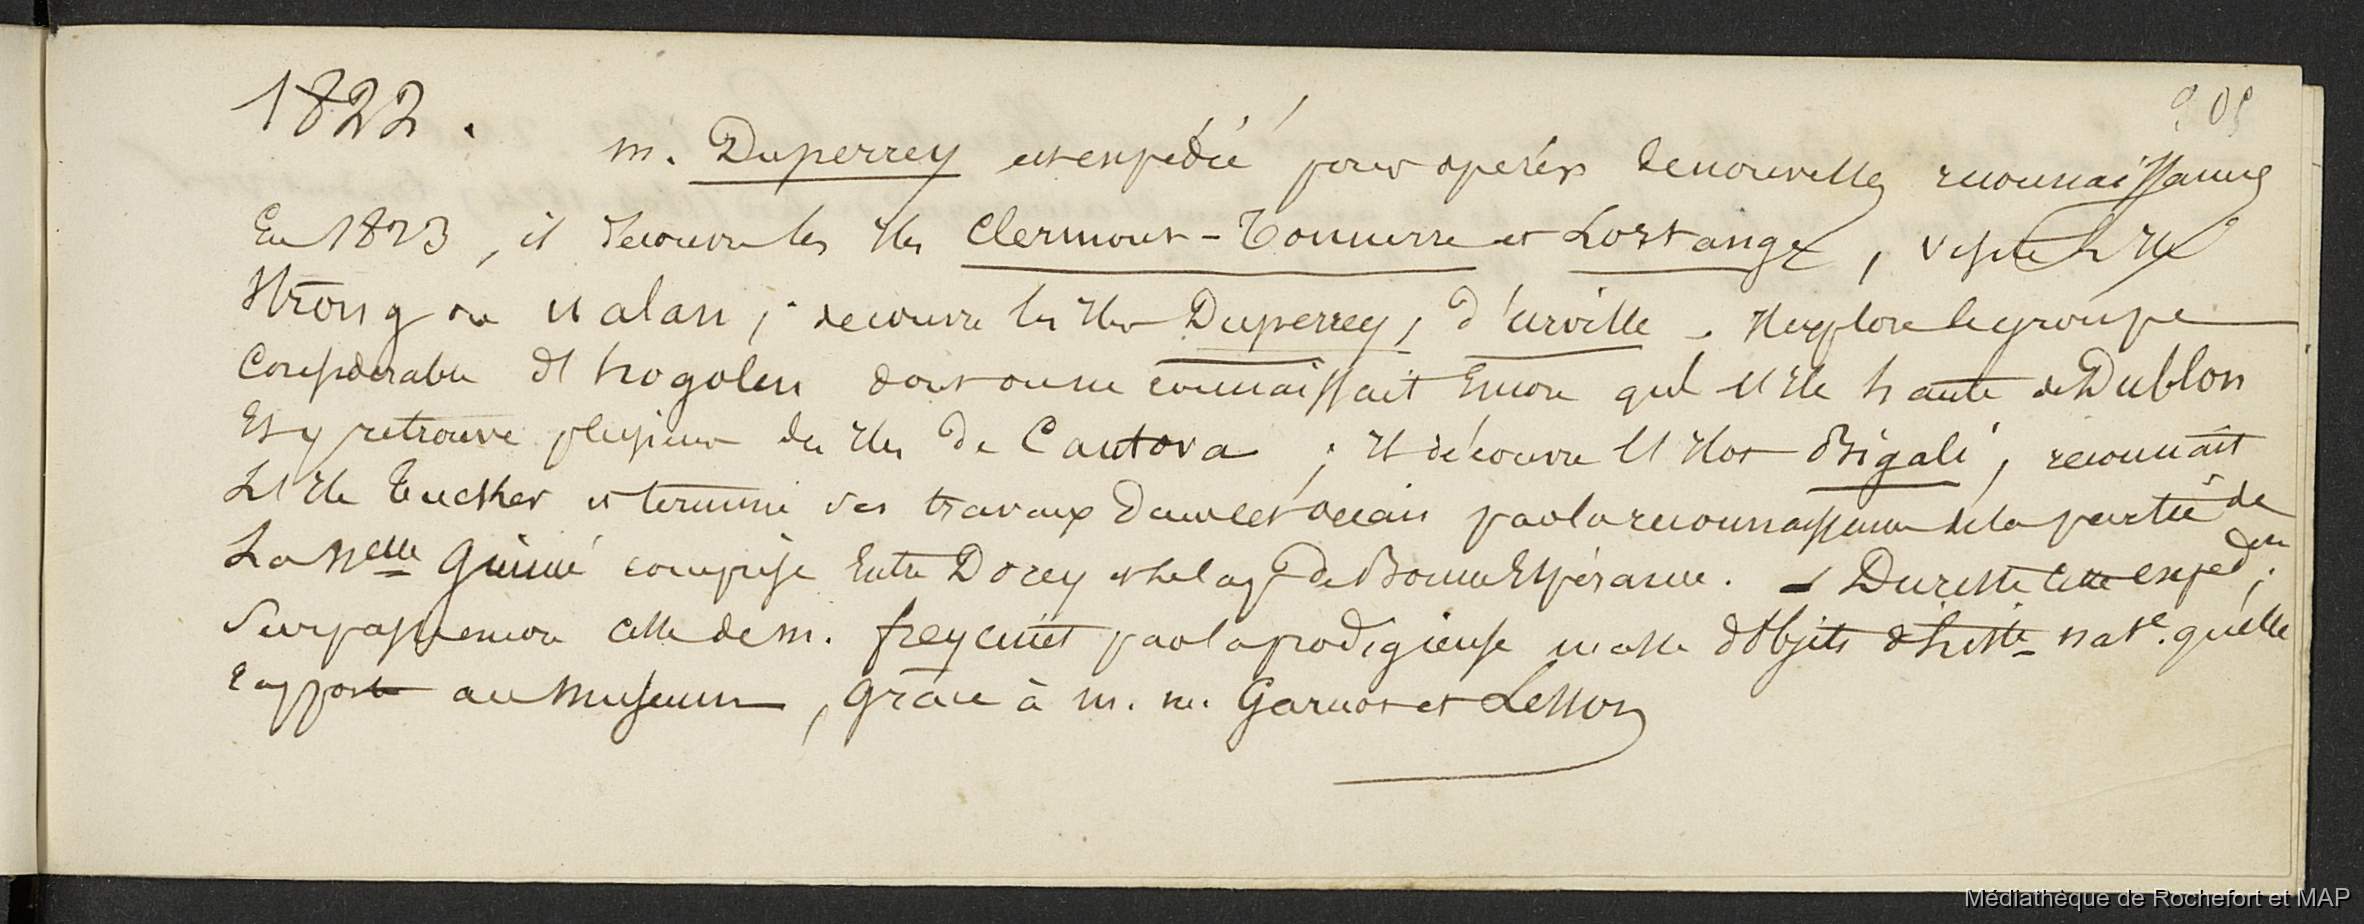 1822.
M. Duperrey est expédié pour opérer de nouvelles reconnaissances
En 1823, il découvre les Iles Clermont-Tonnerre et Lostange, visite l'Ile
Strong ou Ualan; découvre les Iles Duperrey, d'urville. Il explore le groupe
Considerable d'hogoleu dont on ne connaissait encore que l'Ile haute de Dublon
Et y retrouve plusieurs des Iles de Cantova; Il découvre l'Ilot Bigali, reconnaît
L'Ile Tucker et termine ses travaux dans cet océan par la reconnaissance de la partie de
La Nelle Guinée comprise Entre Dorey et le cap de Bonne Espérance. - Du reste cette expedon
Surpasse encore celle de M. freycinet par la prodigieuse masse d'objets d'histre nate. qu'elle
rapporte au Museum, Grâce à M. M. Garnot et Lesson
Médiathèque de Rochefort et MAP